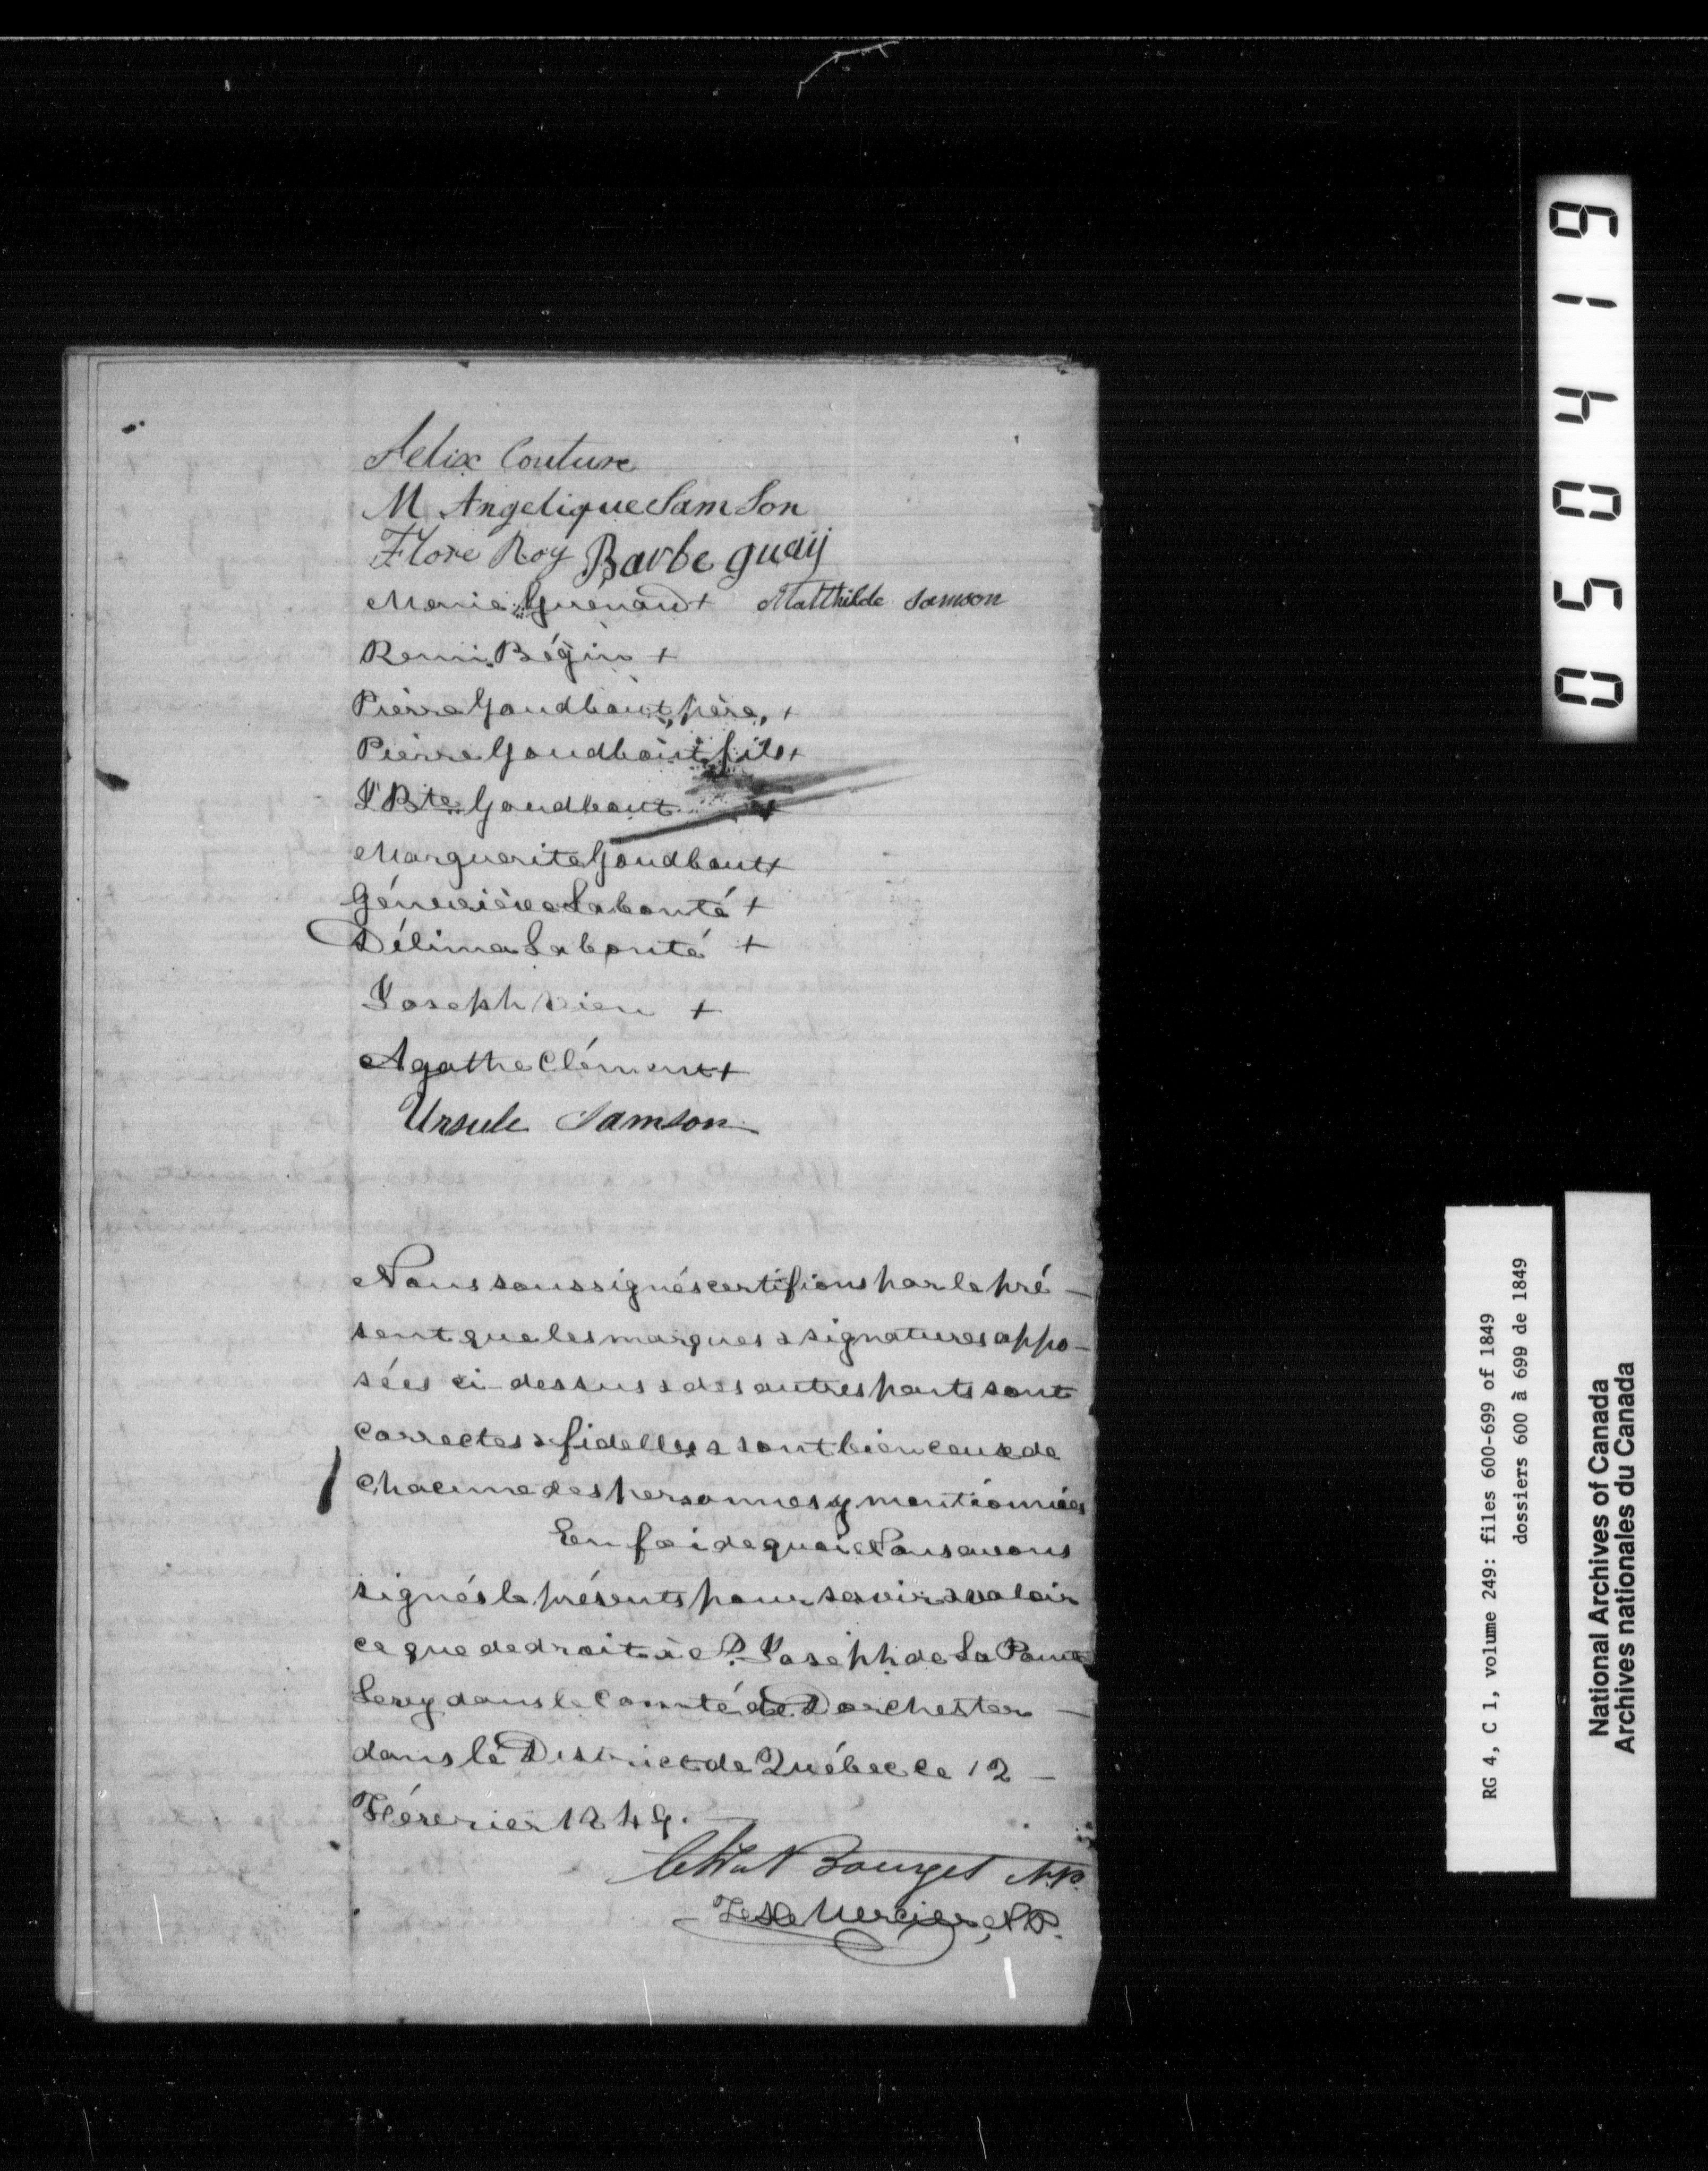 Felix Couture
M Angelique SamSon
Flore Roy Barbe guaij
Marie Guénard + Matthilde Samson
Remi Bégin +
Pierre Goudbout, père, +
Pierre Goudbout fils +
J Bte Goudbout +
Marguerite Goudbout +
Géneviève Labonté +
Délima Labonté +
Joseph Vien +
Agathe Clément +
Ursule Samson
Nous soussignés certifions par le pré-
sent que les marques & signatures appo-
sées ci-dessus & des autres parts sont
correctes & fidelles & sont bien ceux de
chacune des personnes y mentionnées
En foi de quoi Nous avons
signés le présents pour servir & valoir
ce que de droit à St. Joseph de La Pointe
Levy dans le Comté de Dorchester —
dans le District de Québec ce 12 —
Février 1849.
Bourget N.P.
Mercier, N.P.
050419
RG 4, C 1, volume 249: files 600-699 of 1849
dossiers 600 à 699 de 1849
National Archives of Canada
Archives nationales du Canada